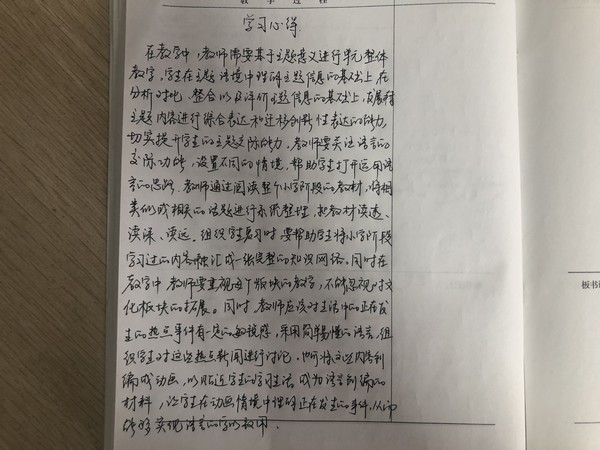 教学过程
学习心得
在教学中，教师需要基于主题意义进行单元整体
教学。学生在主题语境中理解主题信息的基础上，在
分析对比、整合以及评价主题信息的基础上，发展对
主题内容进行综合表达和迁移创新性表达的能力，
切实提升学生的主题交际能力。教师要关注语言的
交际功能，设置不同的情境，帮助学生打开运用语
言的思路。教师通过阅读整个小学阶段的教材，将相
类似或相关的话题进行系统整理，把教材读透、
读深、读远。组织学生复习时要帮助学生将小学阶段
学习过的内容融汇成一张完整的知识网络。同时在
教学中教师要重视每个版块的教学，不能忽视对文
化板块的拓展。同时，教师应该对生活中的正在发
生的热点事件有一定的敏锐感，采用简单易懂的语言，组
织学生对这些热点新闻进行讨论。也可将这些内容创
编成动画，以贴近学生的学习生活，成为语言创编的
材料，让学生在动画情境中理解正在发生的事件，从而
能够实现语言的学以致用。
板书